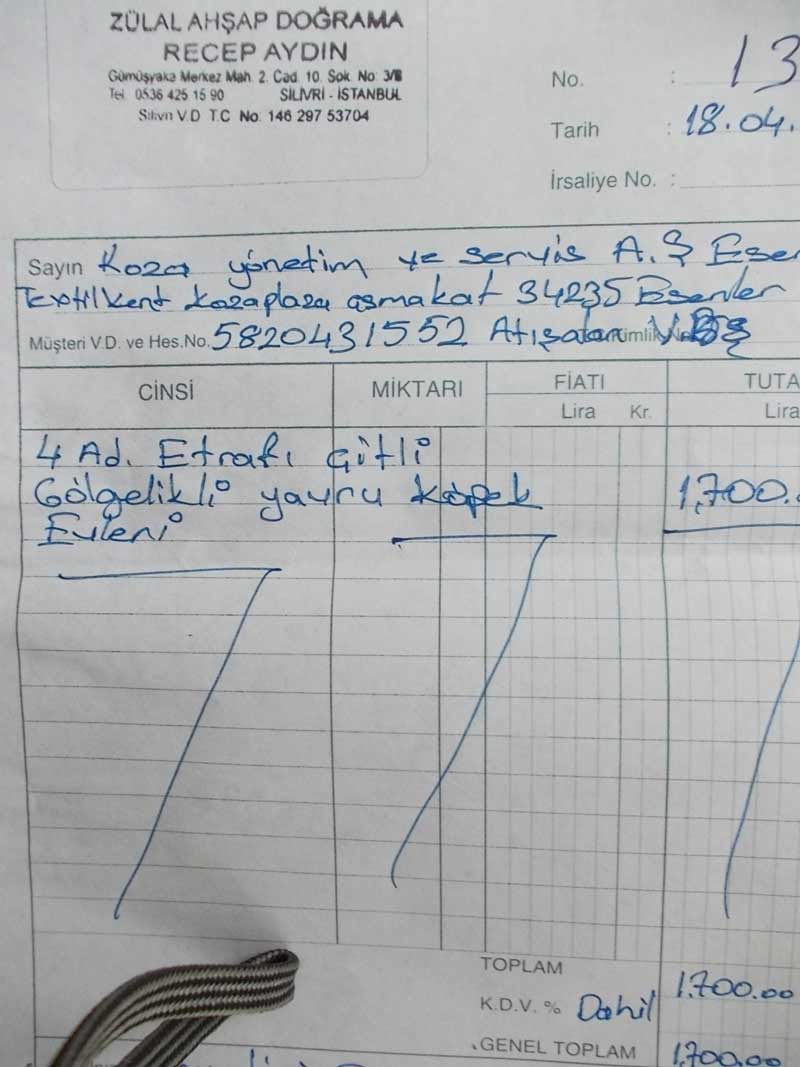 ZÜLAL AHŞAP DOĞRAMA
RECEP AYDIN
Gümüşyaka Merkez Mah. 2. Cad. 10. Sok. No: 3/B
Tel: 0536 425 15 90 SİLİVRİ - İSTANBUL
Silivri V.D T.C No: 146 297 53704
No. : 13
Tarih : 18.04.
İrsaliye No. :
Sayın Koza yönetim ve servis A.Ş Esen
Textilkent kozaplaza asmakat 34235 Esenler
Müşteri V.D. ve Hes.No. 5820431552 Atışalan
CİNSİ MİKTARI FİATI TUTA
Lira Kr. Lira
4 Ad. Etrafı Çitli
Gölgelikli yavru köpek 1,700.
Evleri
TOPLAM 1.700.00
K.D.V. % Dahil
GENEL TOPLAM 1,700.00